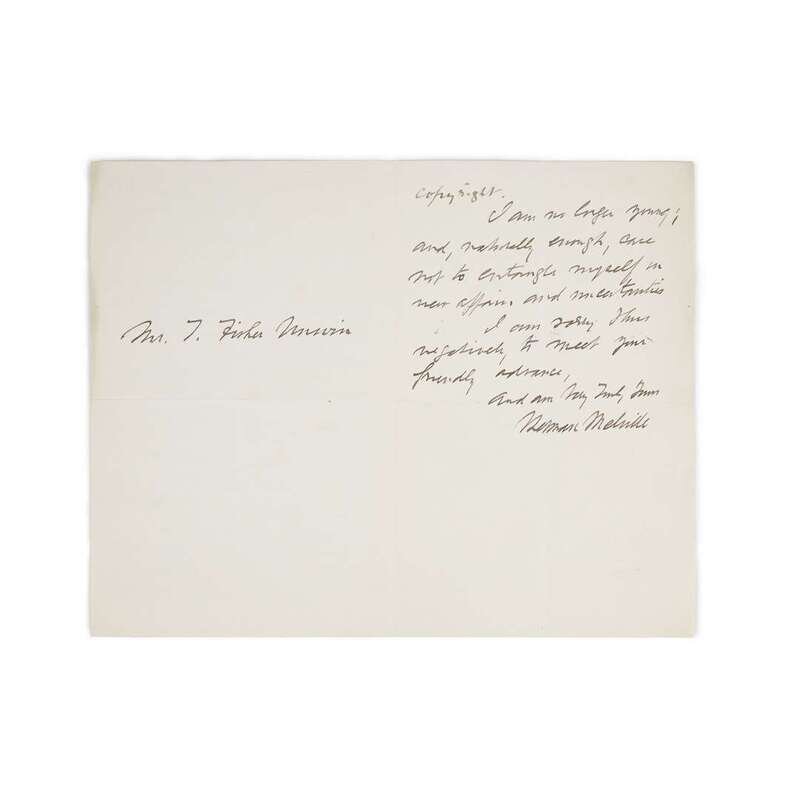 Mr. T. Fisher Unwin
copyright.
I am no longer young;
and, naturally enough, care
not to entangle myself in
new affairs and uncertainties
I am sorry thus
negatively, to meet your
friendly advance,
And am Very Truly Yours
Herman Melville